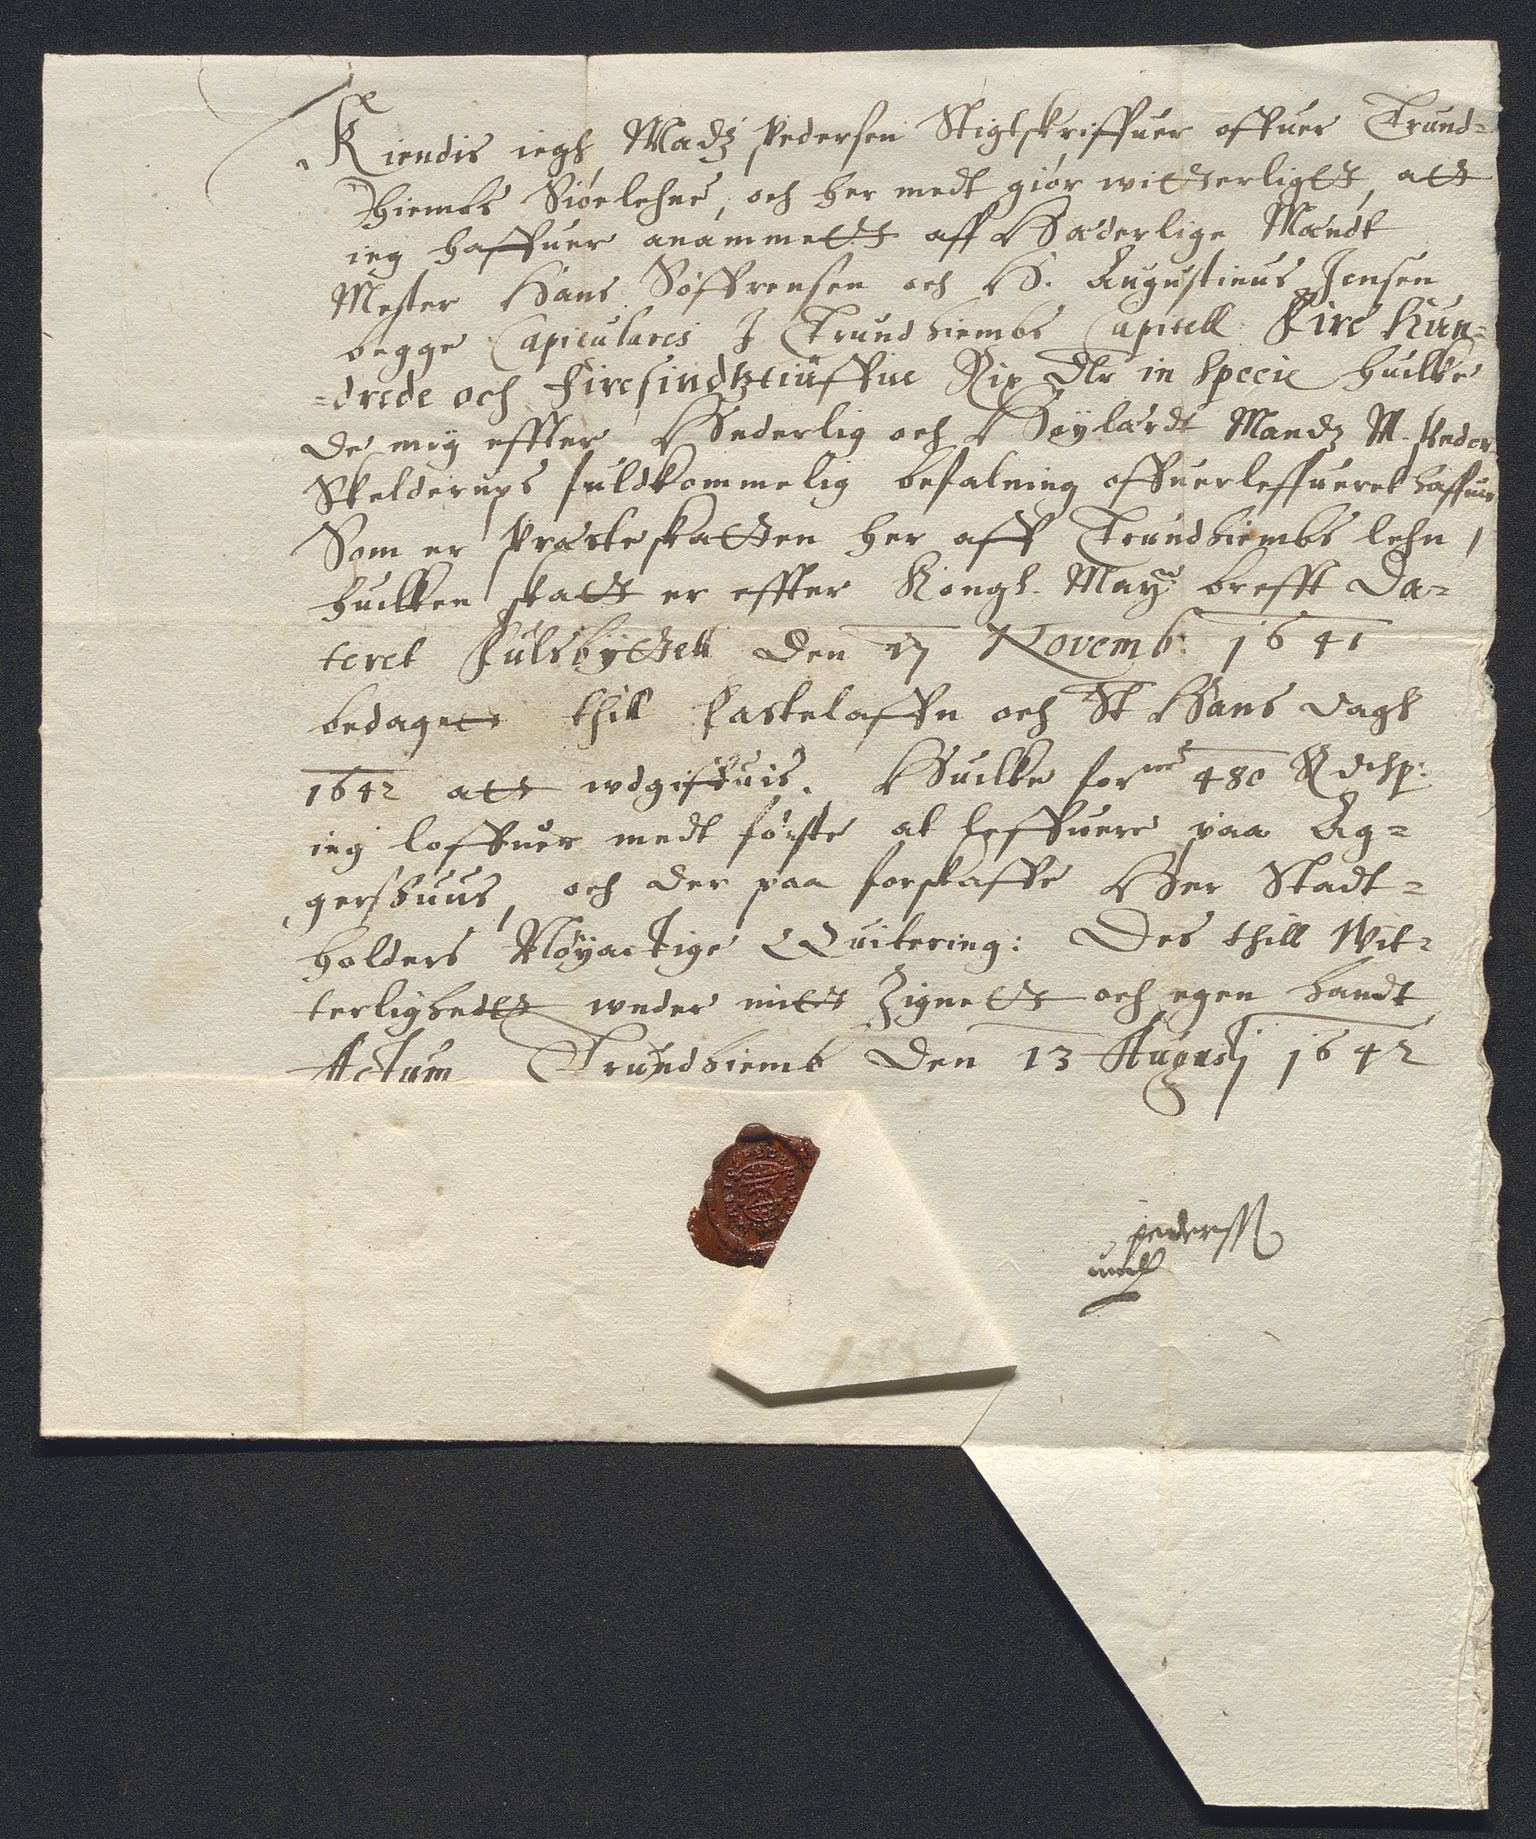 Kiendis iegh Madz Pedersen Stigtskriffuer offuer Trund-
hiembs Siøelehne, och her medt giør witterligtt, att
ieg haffuer anammett aff Hæderlige Mændt
Mester Hans Søffrensen och H. Augustinus Jensen
begge Capitulares J Trundhiembs Capitell Fire Hun-
-drede och Firesindtztiuffue Rix Dlr in specie huilke
de mig effter Hæderlig och Høylærdt Mandz M. Peder
Skelderups fuldkommelig befalning offuerleffueret haffuer
Som er Præsteskatten her aff Trundhiembs lehn,
huilken skatt er effter Kongl. Maytt breff Da-
teret Fulsbyttell den 17 Novemb: 1641
bedagett thill Fastelaffn och St Hans dagh
1642 att wdgiffuis. Huilke forne 480 Rdsp:
ieg loffuer medt første at leffuere paa Ag-
gershuus, och der paa forskaffe Her Stadt-
holders Nøyactige Quitering: Des thill Wit-
terlighedtt wnder mitt Zignett och egen handt
Actum Trundhiemb den 13 Augustj 1642
pederss